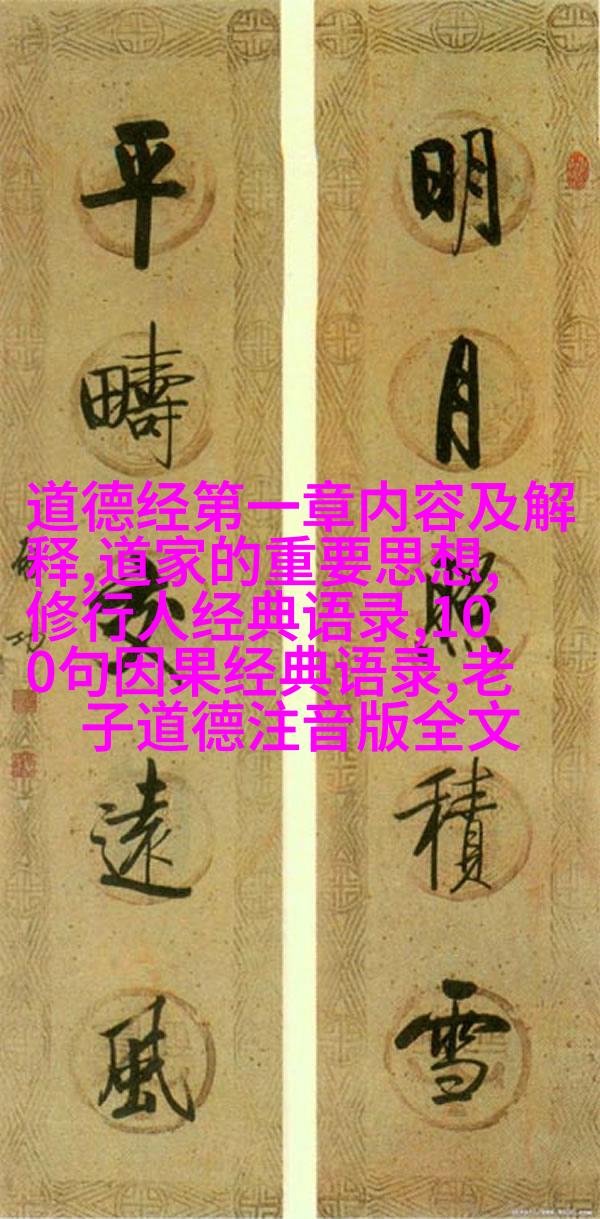 明月照積雪
平疇遠風
道德经第一章内容及解
释,道家的重要思想,
修行人经典语录,10
0句因果经典语录,老
子道德注音版全文